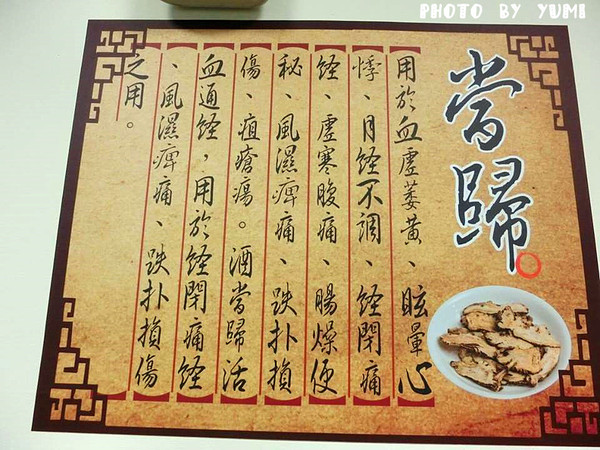 PHOTO BY YUMI
當歸。
用於血虛萎黃、眩暈心
悸、月經不調、經閉痛
經、虛寒腹痛、腸燥便
秘、風濕痺痛、跌扑損
傷、疽瘡瘍。酒當歸活
血通經，用於經閉痛經
、風濕痺痛、跌扑損傷
之用。